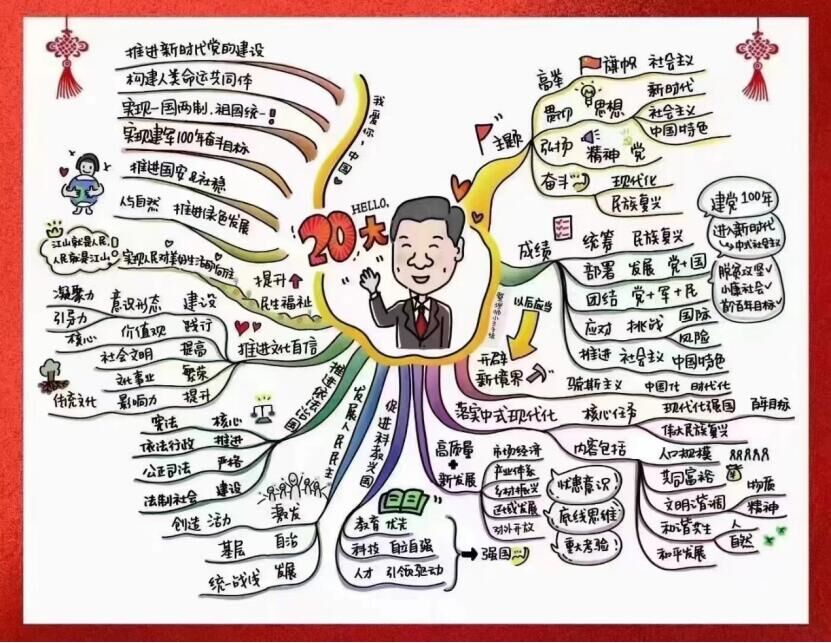 推进新时代党的建设
构建人类命运共同体
实现一国两制,祖国统一!
实现建军100年奋斗目标
推进国安&社稳
人与自然 推进绿色发展
江山就是人民,
人民就是江山
实现人民对美好生活的向往
提升
民生福祉
我爱你,中国
HELLO,
20大
主题
高举 旗帜 社会主义
贯彻 思想 新时代
社会主义
中国特色
弘扬 精神 党
奋斗 现代化
民族复兴
成绩
统筹 民族复兴
部署 发展 党+国
团结 党+军+民
应对 挑战 国际
风险
推进 社会主义 中国特色
建党100年
进入新时代
中式社会主义
脱贫攻坚✓
小康社会✓
首个百年目标✓
以后应当
开辟
新境界
马斯主义 中国化 时代化
落实中式现代化
核心任务 现代化强国 百年目标
伟大民族复兴
内容包括 人口规模
共同富裕
文明谐调 物质
精神
和谐共生 人
自然
和平发展
高质量
+
新发展
市场经济
产业体系
乡村振兴
区域发展
对外开放
忧患意识
底线思维
重大考验
促进科教兴国
教育 优先
科技 自立自强
人才 引领驱动
强国
发展人民民主
激发
创造 活力
基层 自治
统一战线 发展
推进依法治国
宪法 核心
依法行政 推进
公正司法 严格
法制社会 建设
推进文化自信
凝聚力
引导力 意识形态 建设
核心 价值观 践行
社会文明 提高
文化事业 繁荣
传统文化 影响力 提升